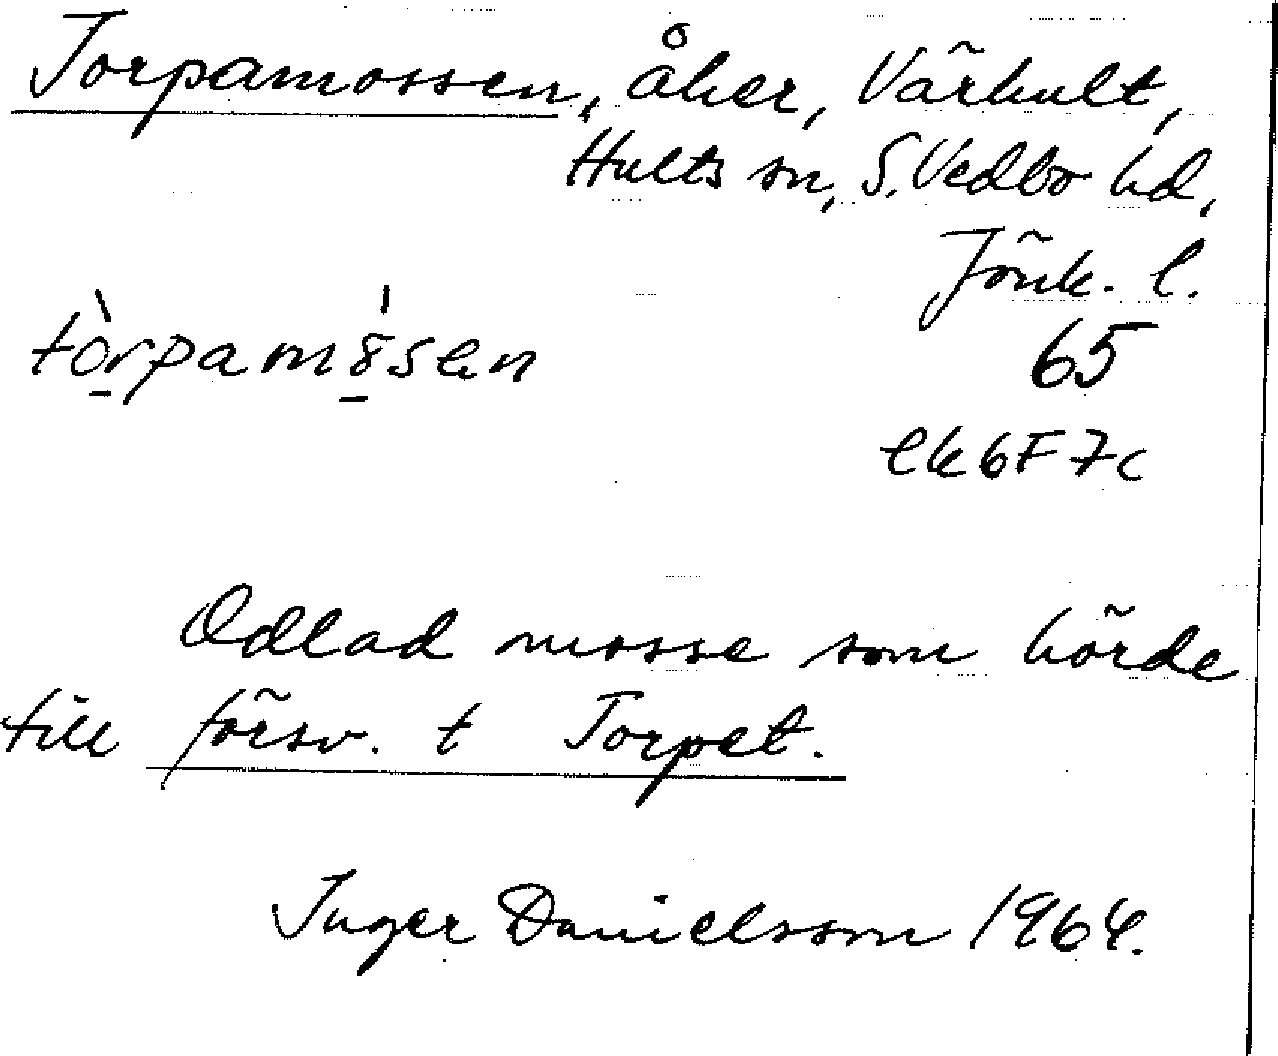 Torpamossen, åker, Värhult,
Hults sn, S. Vedbo hd,
Jönk. l.
tòrpamósen
65
ek 6F 7c
Odlad mosse som hörde
till försv. t Torpet.
Inger Danielsson 1964.